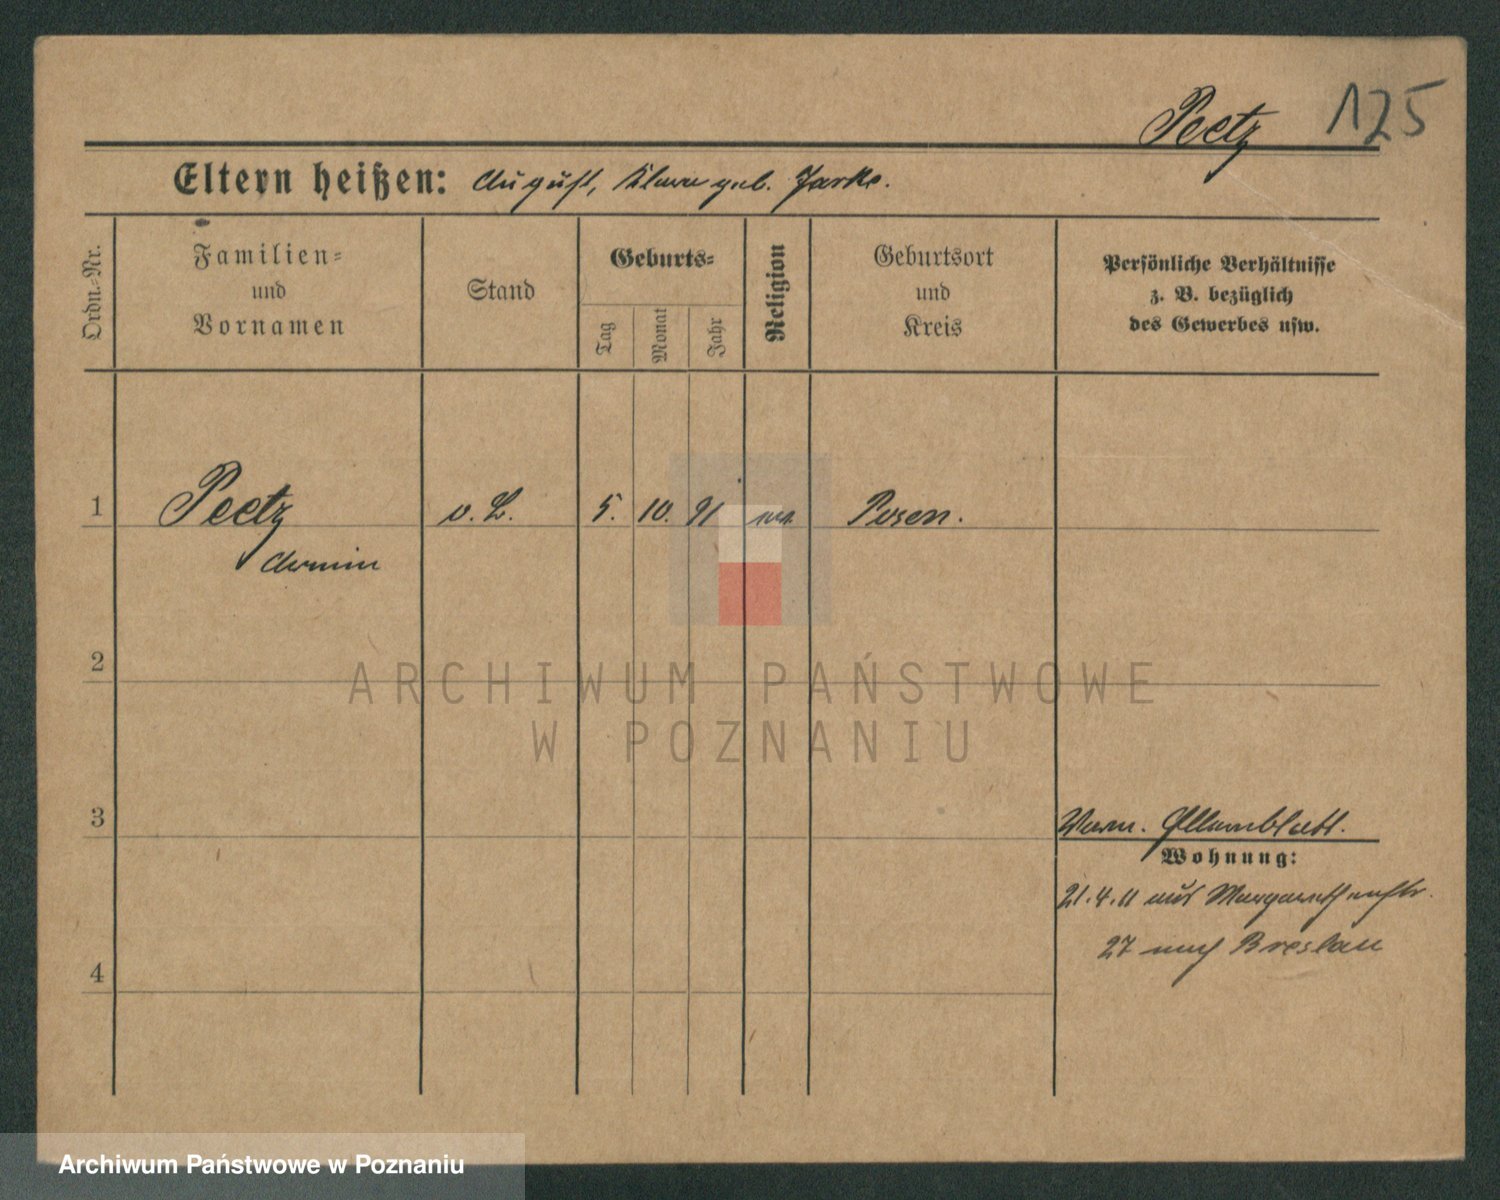 Peetz 125
Eltern heißen: August, Clara geb. Jarke.
Ordn.-Nr.
Familien-
und
Vornamen
Stand
Geburts-
Tag
Monat
Jahr
Religion
Geburtsort
und
Kreis
Persönliche Verhältnisse
z. B. bezüglich
des Gewerbes usw.
1 Peetz o. B. 5. 10. 91 ev. Posen.
Armin
2
ARCHIWUM PAŃSTWOWE
W POZNANIU
3
Elternblatt.
Wohnung:
21.4.11 aus Margarethenstr.
27 nach Breslau
4
Archiwum Państwowe w Poznaniu